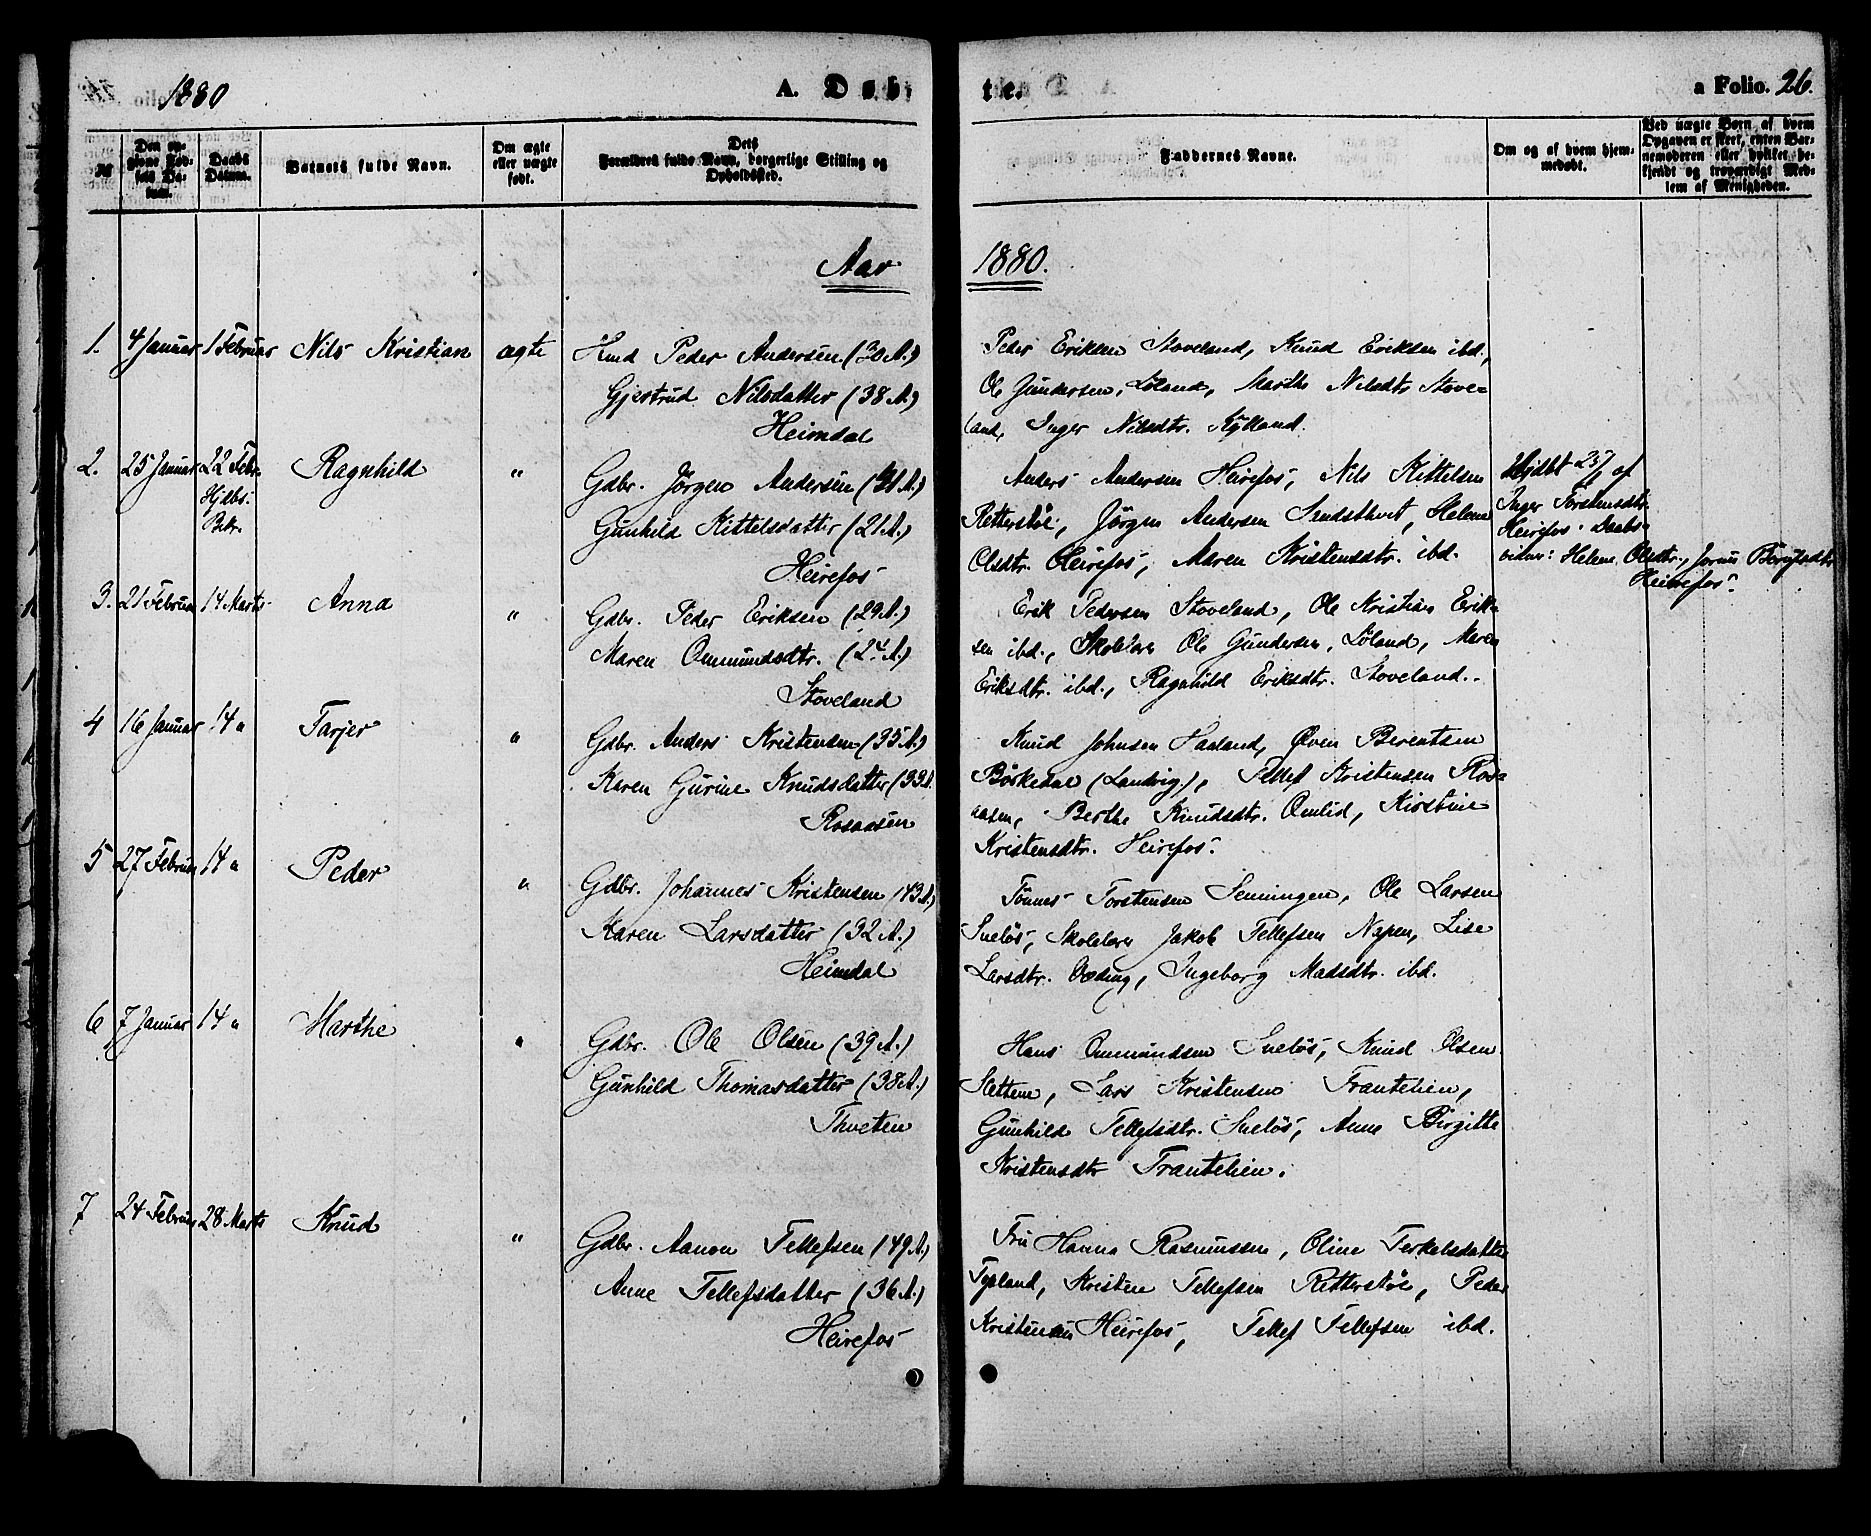 1880
A. Døb-
te.
a Folio. 26.
№
Den opgivne Fødsels Datum.
Daabs Datum.
Barnets fulde Navn.
Om ægte eller uægte født.
Dets Forældres fulde Navn, borgerlige Stilling og Opholdssted.
Faddernes Navne.
Om og af hvem hjemmedøbt.
Ved uægte Børn af hvem Opgaven er skeet, enten Barnemoderen eller hvilket bekjendt og troværdigt Medlem af Menigheden.
Aar 1880.
1. 4 Januar 1 Februar Nils Kristian ægte
Peder Andersen (30 A.)
Gjertrud Nilsdatter (38 A.)
Heimdal
Peder Eriksen Stoveland, Knud Eriksen ibd.,
Ole Gundersen, Løland, Marthe Nilsdtr. Stove-
land, Inger Nilsdtr.
2. 25 Januar 22 Febr. Hjdbs. Bekr. Ragnhild "
Gdbr. Jørgen Andersen
Gunhild Kittelsdatter (21 A.)
Heirefos
Anders Andersen Heirefos, Nils Kittelsen
Retterstøl, Jørgen Andersen Sandsthvet, Helene
Olsdtr. Heirefos, Maren Kristensdtr. ibd.
Hjdbt 25/1 af
Inger Torstensdtr.
Heirefos. Daabs-
vidner: Helene Olsdtr.,
Heirefos.
3. 21 Februar 14 Marts Anna "
Gdbr. Peder Eriksen (29 A.)
Maren Ommundsdtr. (24 A.)
Stoveland
Erik Pedersen Stoveland, Ole Kristian Erik-
sen ibd., Skolelærer Ole Gundersen, Løland, Maren
Eriksdtr. ibd., Ragnhild Eriksdtr. Stoveland.
4 16 Januar 14 " Tarjer "
Gdbr. Anders Kristensen (35 A.)
Karen Gurine Knudsdatter (33 A.
Rosaasen
Knud Johnsen Haaland, Øven Berentsen
Børkedal (Landvig), Tellef Kristensen Ros-
aasen, Berthe Knudsdtr. Omlid, Kirstine
Kristensdtr. Heirefos.
5 27 Februar 14 " Peder "
Gdbr. Johannes Kristensen (43 A.)
Karen Larsdatter (32 A.)
Heimdal
Tønnes Torstensen Senningen, Ole Larsen
Sneløs, Skolelærer Jakob Tellefsen Napen, Lise
Larsdtr. Ingeborg Madsdtr. ibd.
6 7 Januar 14 " Marthe "
Gdbr. Ole Olsen (39 A.)
Gunhild Thomasdatter (38 A.)
Thveten
Hans Ommundsen Sneløs, Knud Olsen
Lars Kristensen Trantelien,
Gunhild Tellefsdtr. Sneløs, Anne Birgitte
Kristensdtr Trantelien.
7 24 Februar 28 Marts Knud "
Gdbr. Aanon Tellefsen (49 A.)
Anne Tellefsdatter (36 A.)
Heirefos
Fru Hanna Rasmussen, Oline Terkelsdatter
Kristen Tellefsen Retterstøl, Peder
Kristensen Heirefos, Tellef Tellefsen ibd.